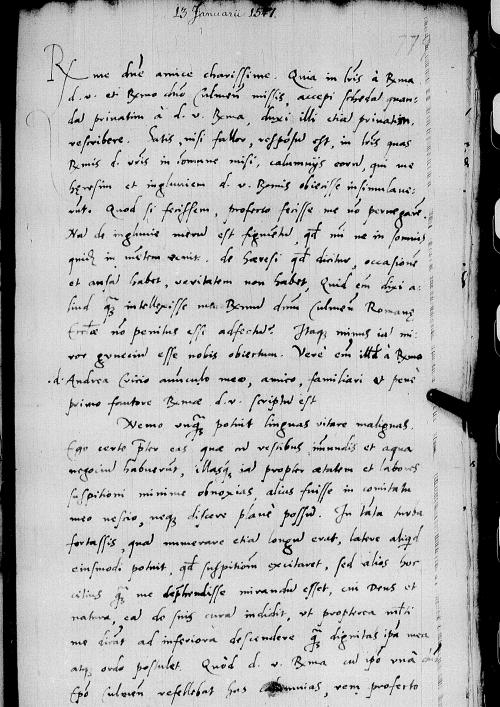 13 Januarii 1571.
Rx me dne amice charissime. Quia in lris à Rxma
d. v. et Rxmo dno Culmeñ missis, accepi schedã quan-
dã privatim à d. v. Rxma, duxi illi etiã privatim
rescribere. Satis, nisi fallor, respõsũ est, in lris quas
Rxmis d. vris in comune misi, calumnijs eorũ, qui me
hęresim et ingluviem d. v. Rxmis obiecisse insimulave-
rũt. Quod si fecissem, profecto fecisse me nõ pernegarẽ.
Nã de ingluvie merũ est figmẽtũ qd mi ne in somnis
quidẽ in mẽtem venit. de hæresi qd dicitur, occasionẽ
et ansã habet, veritatem non habet. Quid em dixi a-
liud q̃ꝫ intellexisse me Rxmũ dnm Culmeñ Romanę
Eccliæ nõ penitus esse adfectũ? Itaqꝫ minus iã mi-
ror esse nobis obiectum. Verè em illd à Rxmo
d. Andrea Cricio avũculo meo, amico, familiari et penè
primo fautore Rxmæ d. v. scriptũ est
Nemo unqꝫ potuit linguas vitare malignas.
Ego certe pter eas quæ cũ vestibus imũdis et aqua
negociũ habuerũt, illasqꝫ iã propter ætatem et labores
suspitioni minime obnoxias, alias fuisse in comitatu
meo nescio, neqꝫ discere planè possũ. In tãta turba
fortassis, quã numerare etiã longũ erat, latere aliqd
eiusmodi potuit, qd suspitionẽ excitaret, sed alios hoc
citius q̃ꝫ me deprehendisse mirandũ esset, cui Deus et
natura, eã de suis curã indidit, ut propterea mlti
me dicãt ad inferiora descendere q̃ꝫ dignitas ipã mea
atqꝫ ordo postulet. Quòd d. v. Rxma cũ ipõ unà dño
Epo Culmeñ refellebat has calumnias, rem profecto